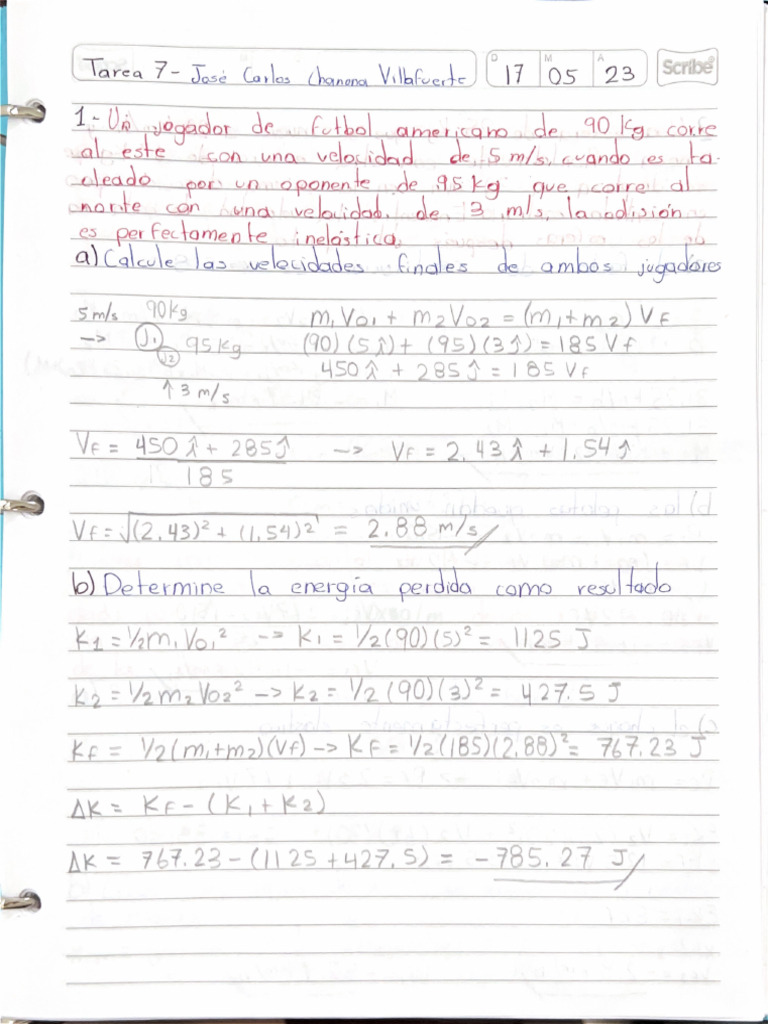 Tarea 7 - José Carlos Chanona Villafuerte
D 17 M 05 A 23
Scribe
1- Un jogador de futbol americano de 90 kg corre
al este con una velocidad de 5 m/s, cuando es ta-
cleado por un oponente de 95 kg que corre al
norte con una velocidad de 3 m/s, la colisión
es perfectamente inelástica.
a) Calcule las velocidades finales de ambos jugadores
5 m/s 90kg
-> J1 95 kg
J2
↑ 3 m/s
m₁Vo₁ + m₂Vo₂ = (m₁+m₂) VF
(90)(5î) + (95)(3ĵ) = 185 VF
450î + 285ĵ = 185 VF
VF = 450 î + 285ĵ / 185 -> VF = 2.43 î + 1.54ĵ
VF = √(2.43)² + (1.54)² = 2.88 m/s
b) Determine la energía perdida como resultado
K1 = ½m₁Vo₁² -> K₁ = ½(90)(5)² = 1125 J
K2 = ½m₂Vo₂² -> K₂ = ½(90)(3)² = 427.5 J
KF = ½(m₁+m₂)(VF) -> KF = ½(185)(2.88)² = 767.23 J
ΔK = KF - (K₁ + K₂)
ΔK = 767.23 - (1125 + 427.5) = -785.27 J